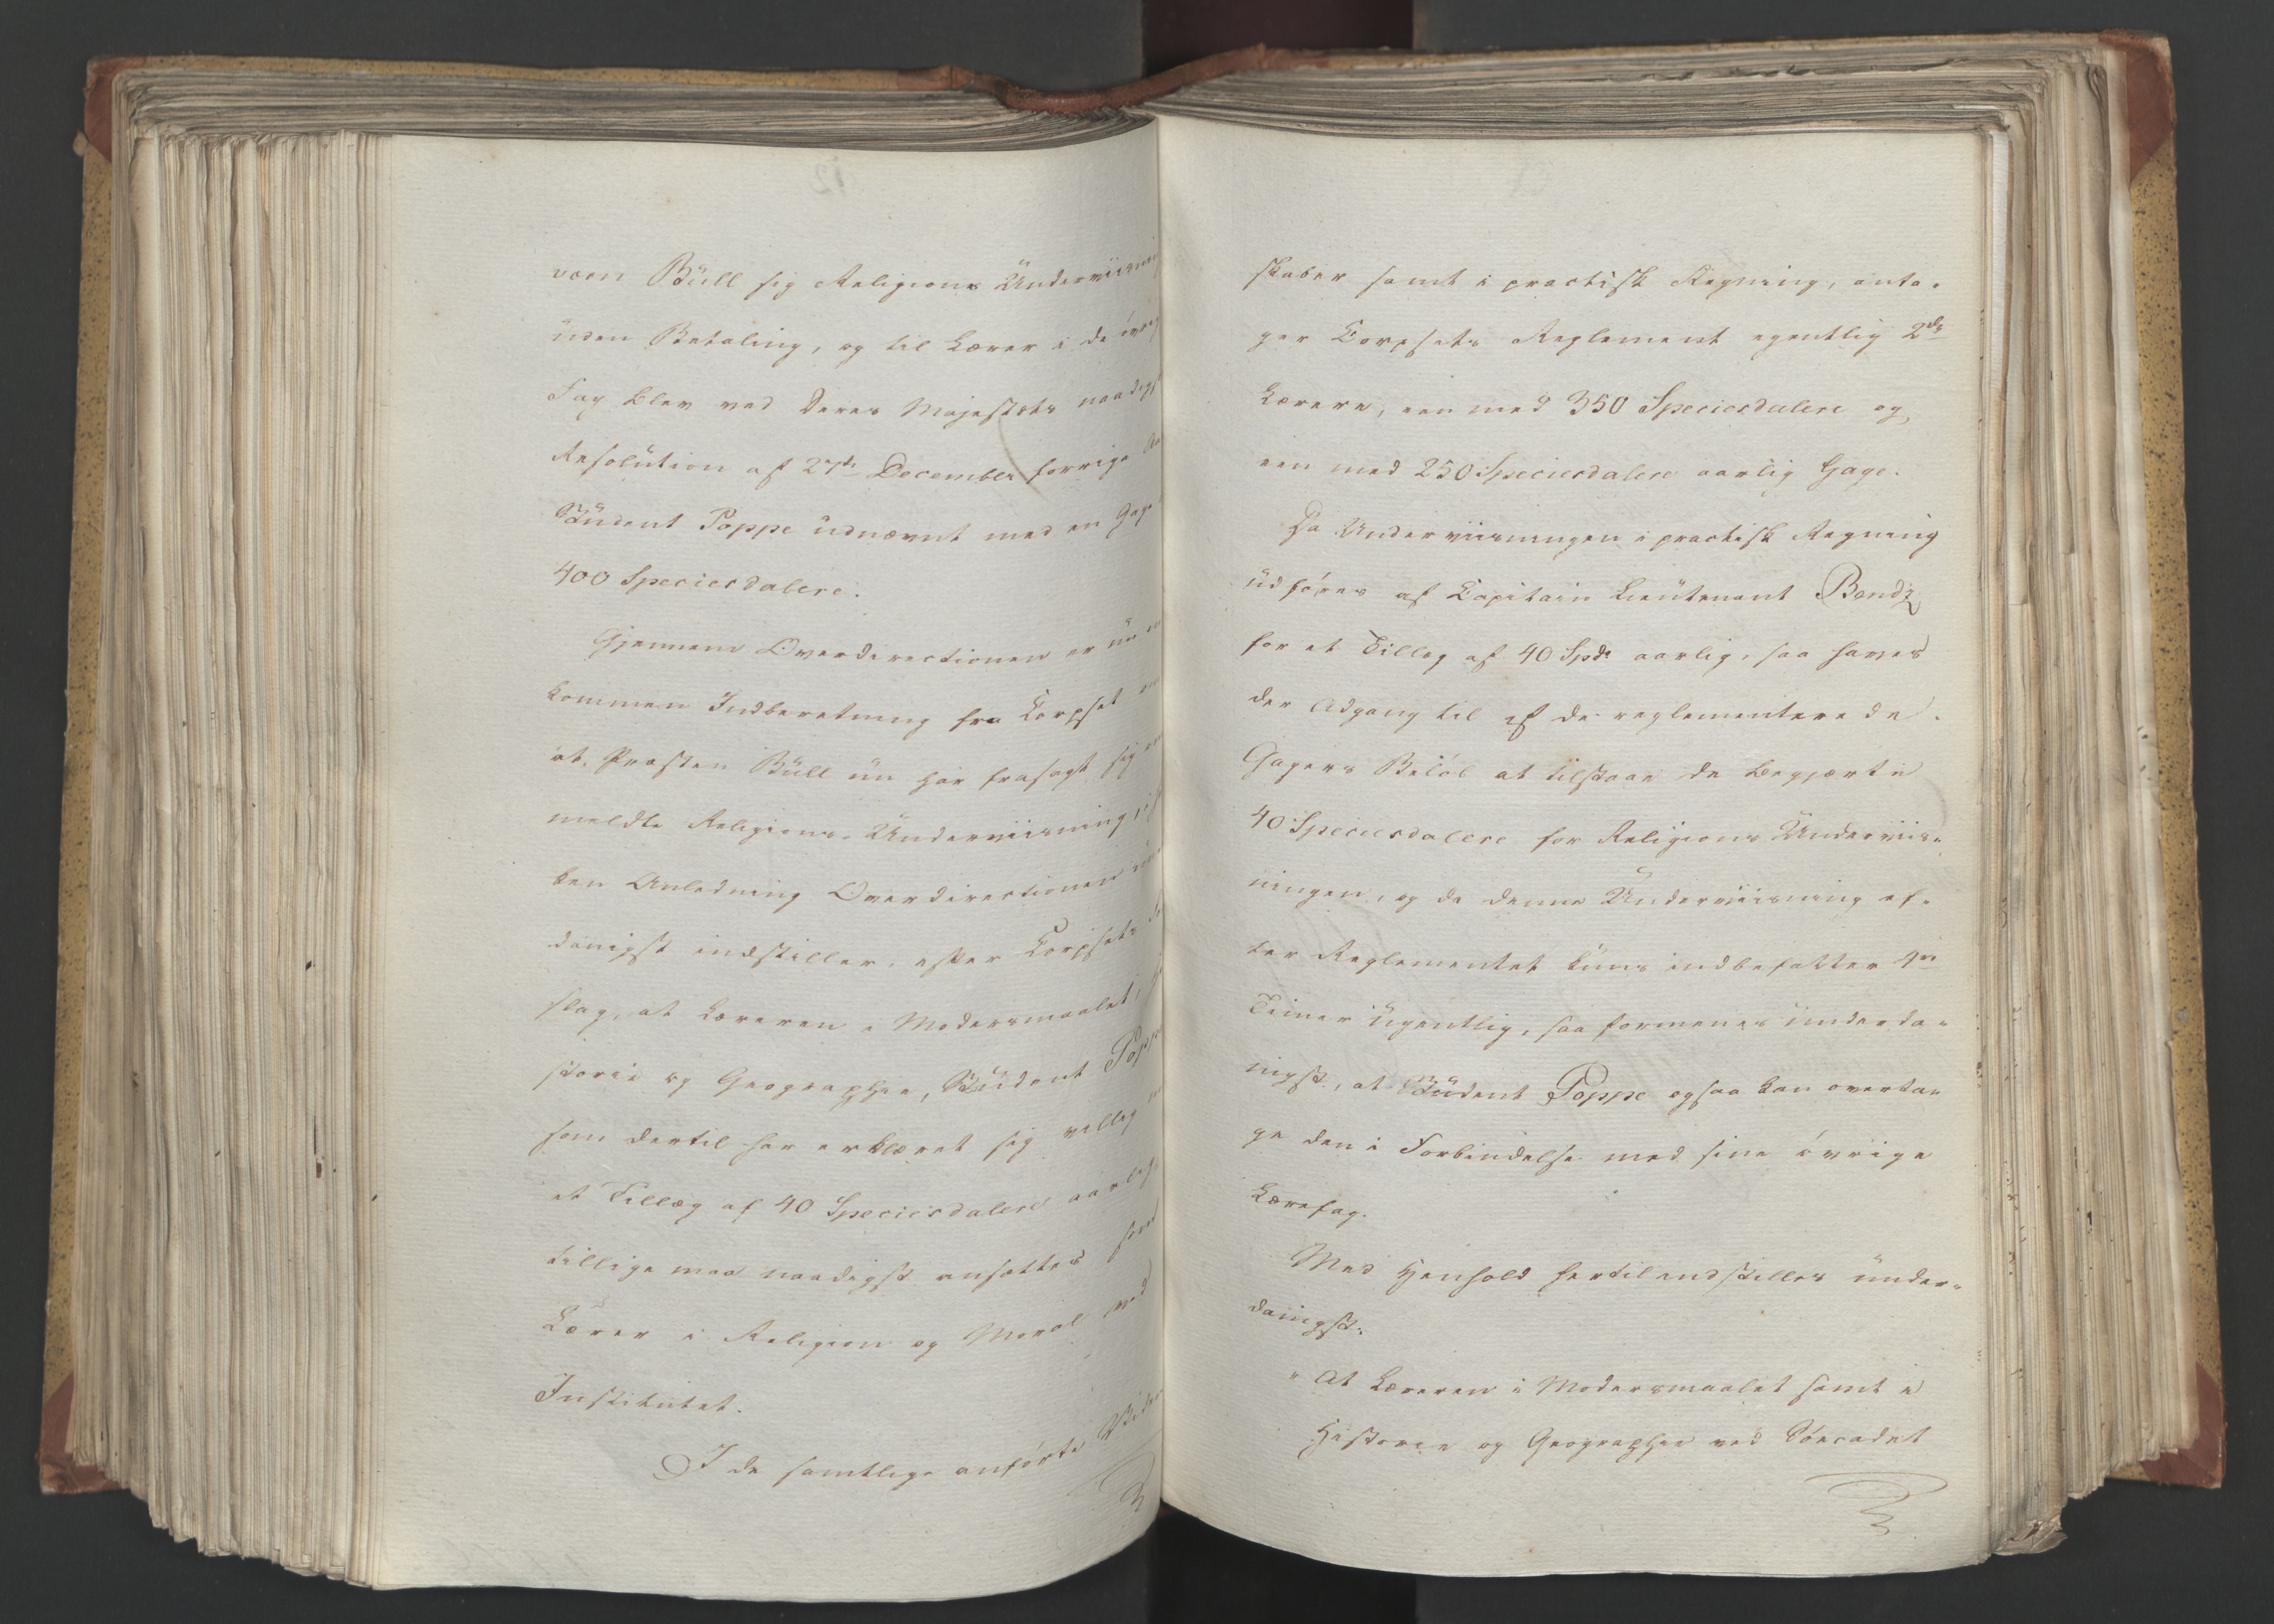 værn Büll sig Religions Underviisning
uden Betaling, og til Lærer i de øvrig
Fag blev ved Deres Majestets naadigst
Resolution af 27de December forrige Aa
Student Poppe udnævnt med en Gage
400 Speciesdalere.
Gjennem Overdirectionen er nu
kommen Indberetning fra Corpset
at Præsten Büll nu har frasagt sig
meldte Religions-Underviisning, i
ken Anledning Overdirectionen
danigst indstiller, efter Corpsets
slag, at Læreren i Modersmaalet,
storie og Geographie, Student Poppe
som dertil har erklæret sig villig
et Tillæg af 40 Speciesdalere aarlig
tillige maa naadigst ansættes som
Lærer i Religion og Moral ved
Institutet.
I de samtlige anførte Viden
skaber samt i practisk Regning, anta-
ger Corpsets Reglement egentlig 2de
Lærere, een med 350 Speciesdalere og
een med 250 Speciesdalere aarlig Gage.
Da Underviisningen i practisk Regning
udføres af Capitain Lieutenant Bendz
for et Tillæg af 40 Spd. aarlig, saa haves
der Adgang til af de reglementerede
Gagers Beløb at tilstaae de begjærte
40 Speciesdalere for Religions Underviis-
ningen, og da denne Underviisning ef-
ter Reglementet kuns indbefatter
Timer ugentlig, saa formenes underda-
nigst, at Student Poppe ogsaa kan overta-
ge den i Forbindelse med sine øvrige
Lærefag.
Med Henhold hertil indstilles under-
danigst:
" At Læreren i Modersmaalet samt i
Historie og Geographie ved Søecadet